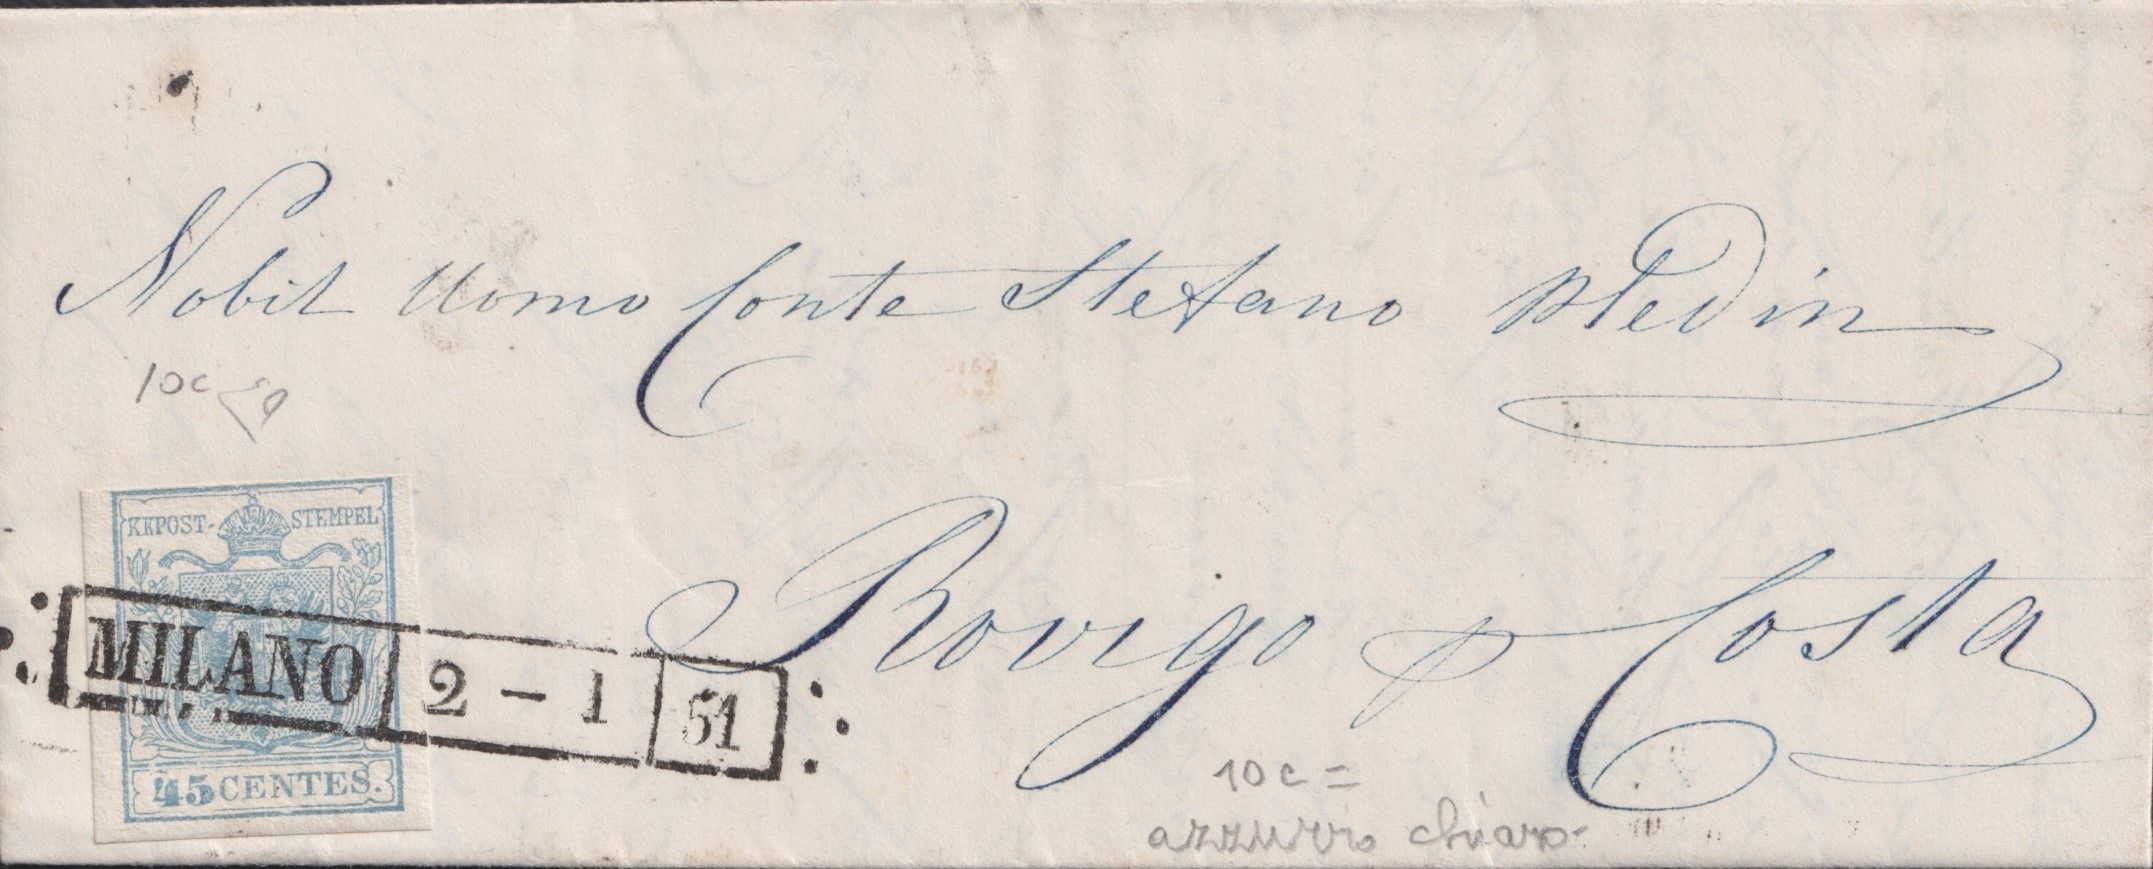 Nobil Uomo Conte Stefano Medin
10c
KKPOST-STEMPEL
Rovigo p Costa
MILANO 2-1 51
45 CENTES.
10 c =
azzurro chiaro